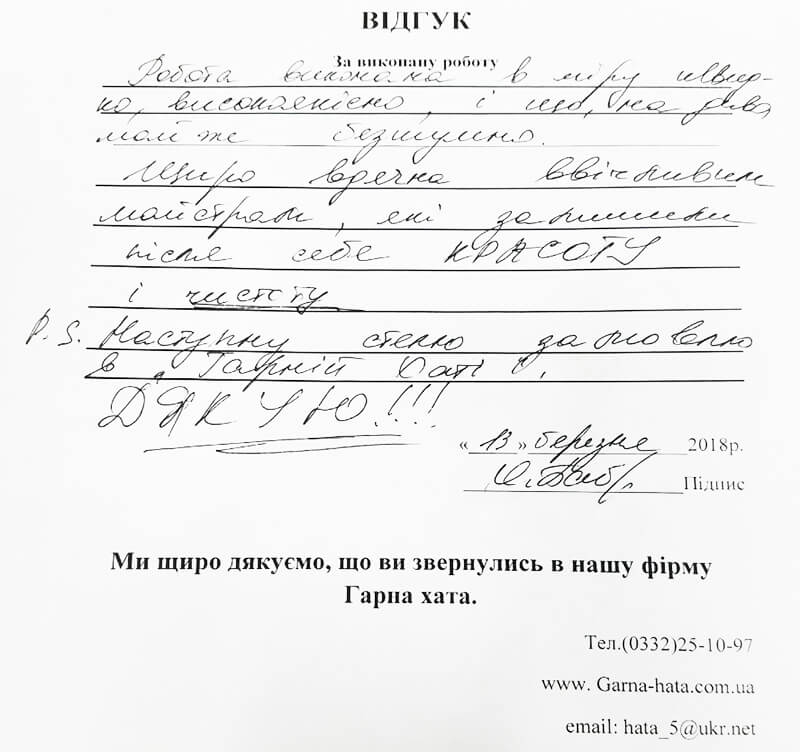 ВІДГУК
За виконану роботу
Робота виконана в міру швид-
ко, високоякісно, і що, на диво,
майже безшумно.
Щиро вдячна ввічливим
майстрам, які залишили
після себе КРАСОТУ
і чистоту
P.S. Наступну стелю замовлю
в "Гарній Хаті".
ДЯКУЮ!!!
« 13 » березня 2018р.
Підпис
Ми щиро дякуємо, що ви звернулись в нашу фірму
Гарна хата.
Тел.(0332)25-10-97
www. Garna-hata.com.ua
email: hata_5@ukr.net